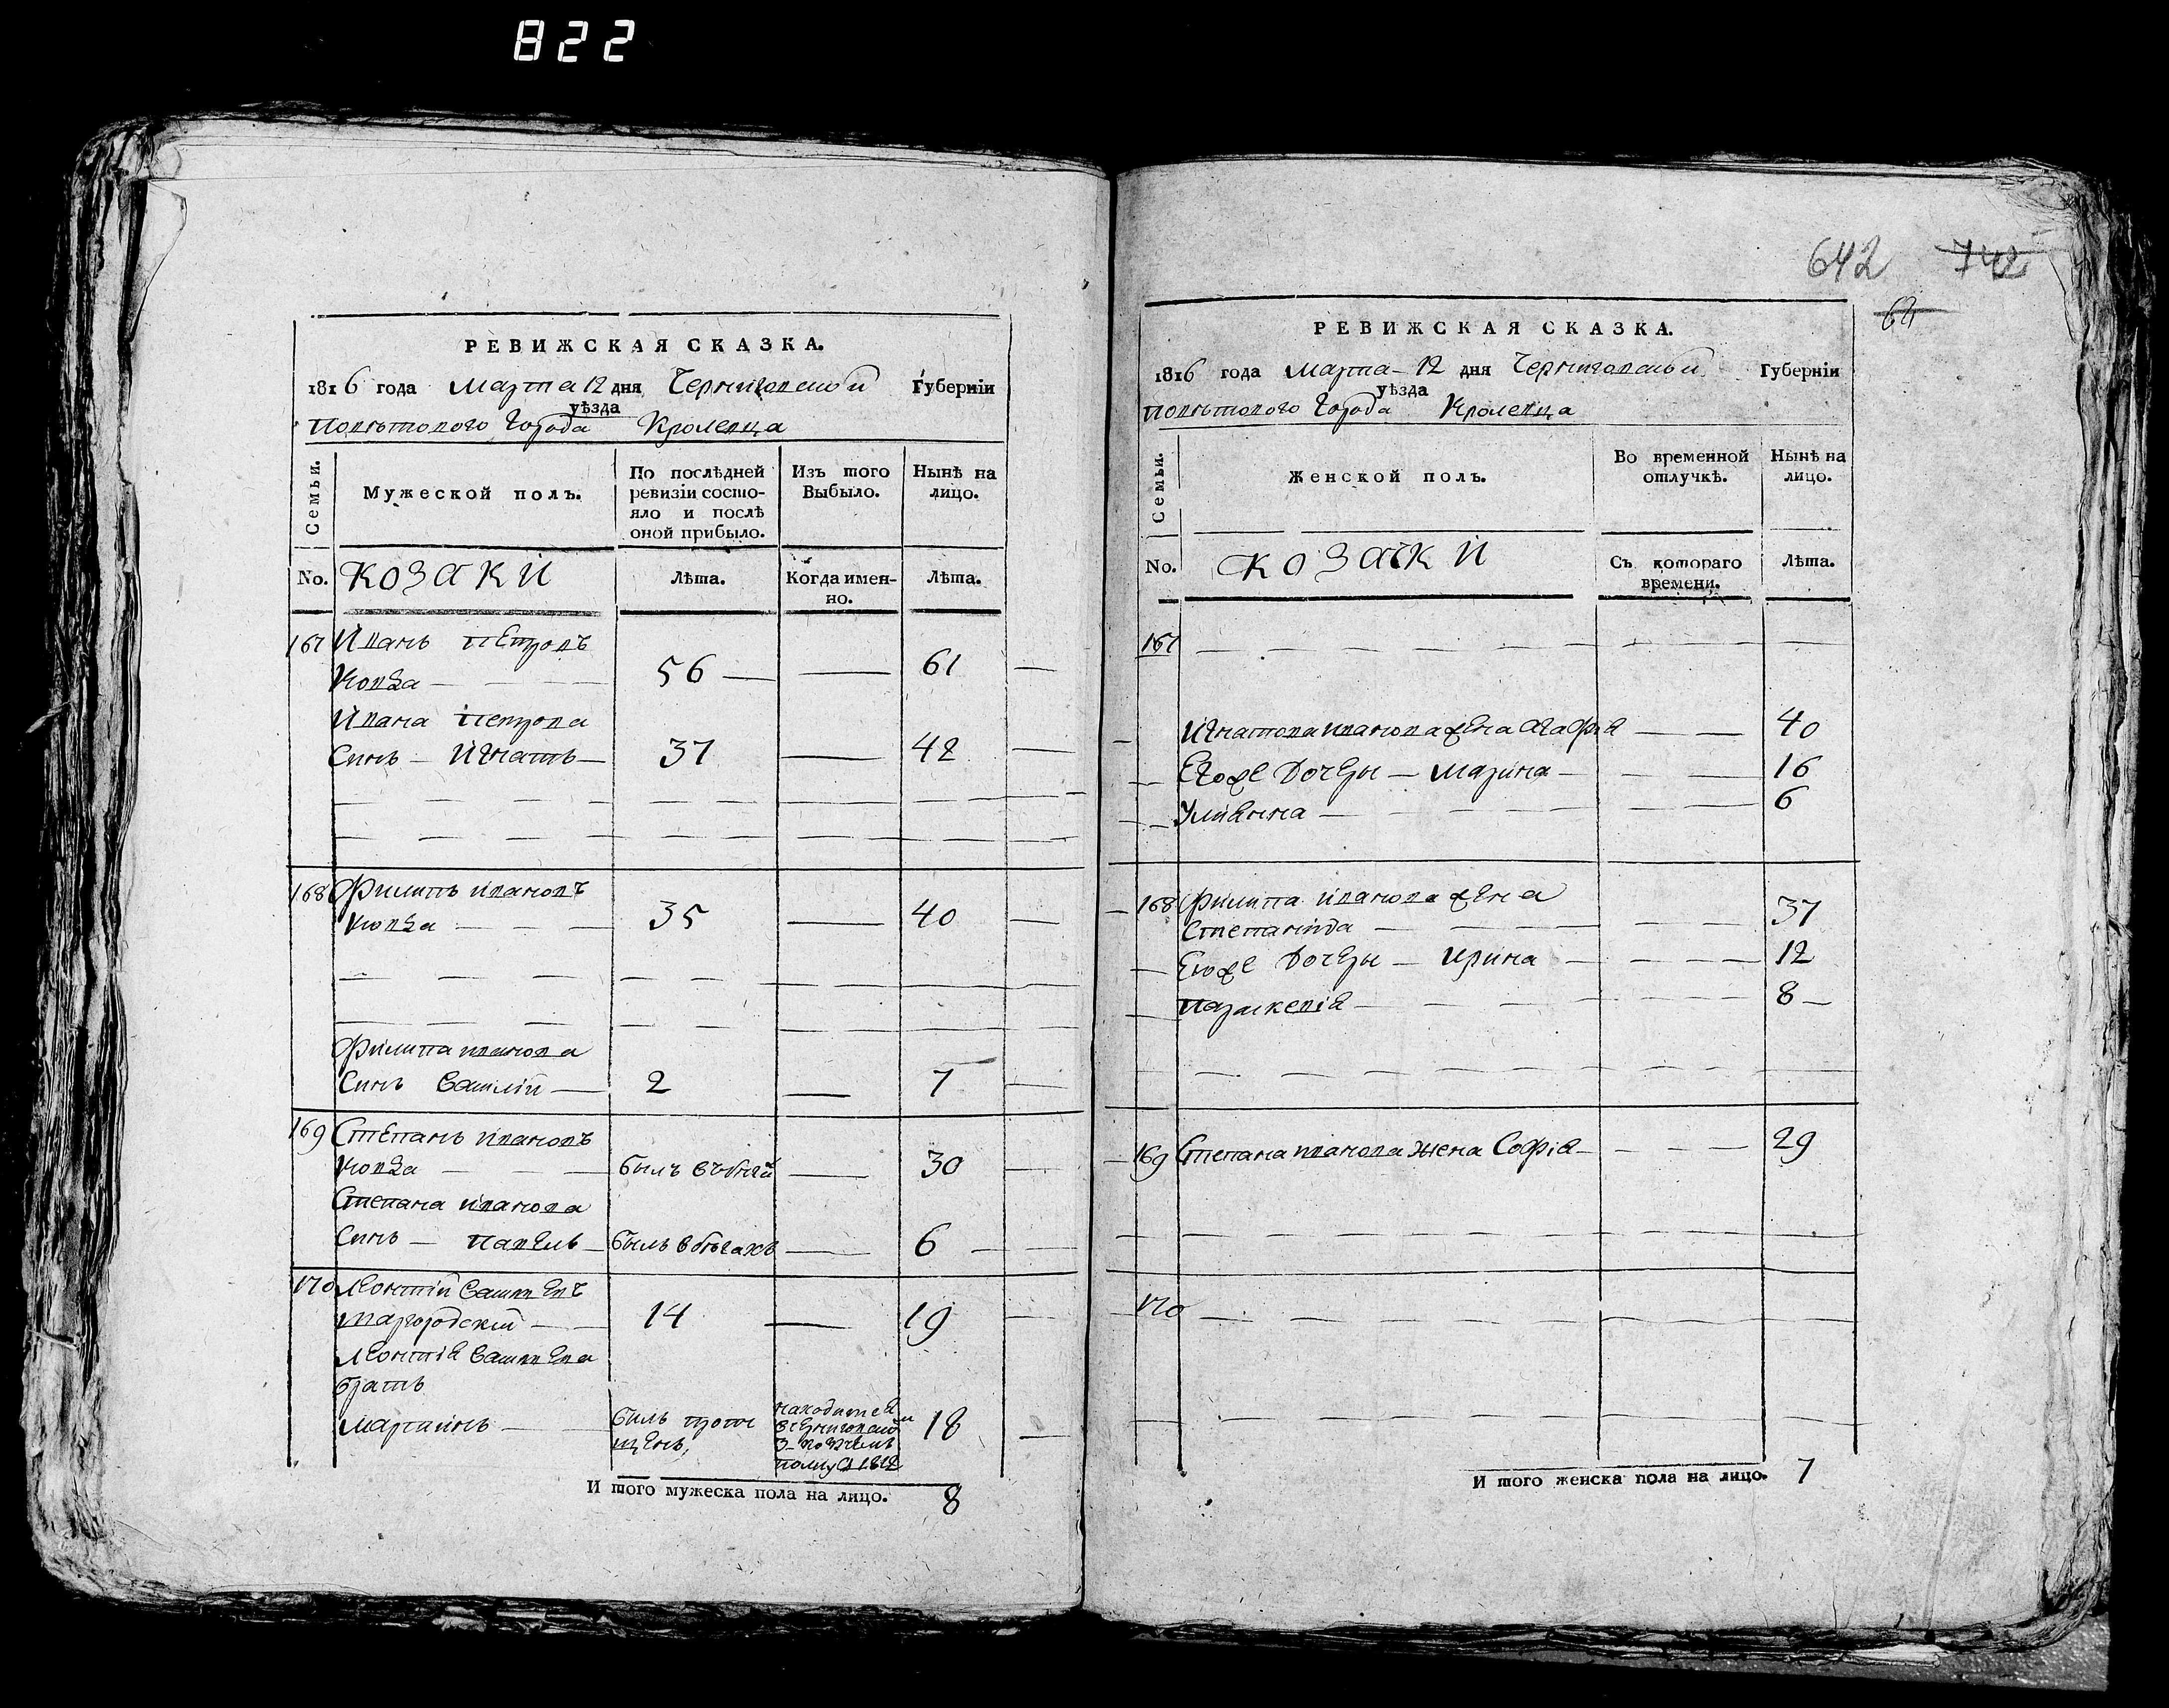 822
642 742
64
РЕВИЖСКАЯ СКАЗКА.
1816 года Марта 12 дня Черниговской Губерніи
уѣзда
Повѣтового Города Кролевца
Семьи.
Мужеской полъ.
По послѣдней ревизіи состо-
яло и послѣ
оной прибыло.
Изъ того
Выбыло.
Нынѣ на
лицо.
No. КОЗАКИ
Лѣта.
Когда имен-
но.
Лѣта.
167 Иванъ Петровъ
Ковза 56 61
Ивана Петрова
Синъ Игнатъ 37 42
168 Филипъ Ивановъ
Ковза 35 40
Филипа Иванова
Синъ Василій 2 7
169 Степанъ Ивановъ
Ковза былъ 30
Степана Иванова
Синъ Павелъ былъ в бѣгахъ 6
170 Леонтій Василевъ
14 19
Леонтія Василева
братъ
билъ находится
в Черниговском
18
полку 1812
И того мужеска пола на лицо. 8
РЕВИЖСКАЯ СКАЗКА.
1816 года Марта 12 дня Черниговской Губерніи
уѣзда
Повѣтового Города Кролевца
Семьи.
Женской полъ.
Во временной
отлучкѣ.
Нынѣ на
лицо.
No. КОЗАЧКИ
Съ котораго
времени.
Лѣта.
167
Игната Иванова жена Агафія 40
Егоже дочеры Марина 16
Улияна 6
168 Филипа Иванова жена
Степанида 37
Егоже Дочеры Ирина 12
Параскевія 8
169 Степана Иванова жена Софія 29
170
И того женска пола на лицо. 7